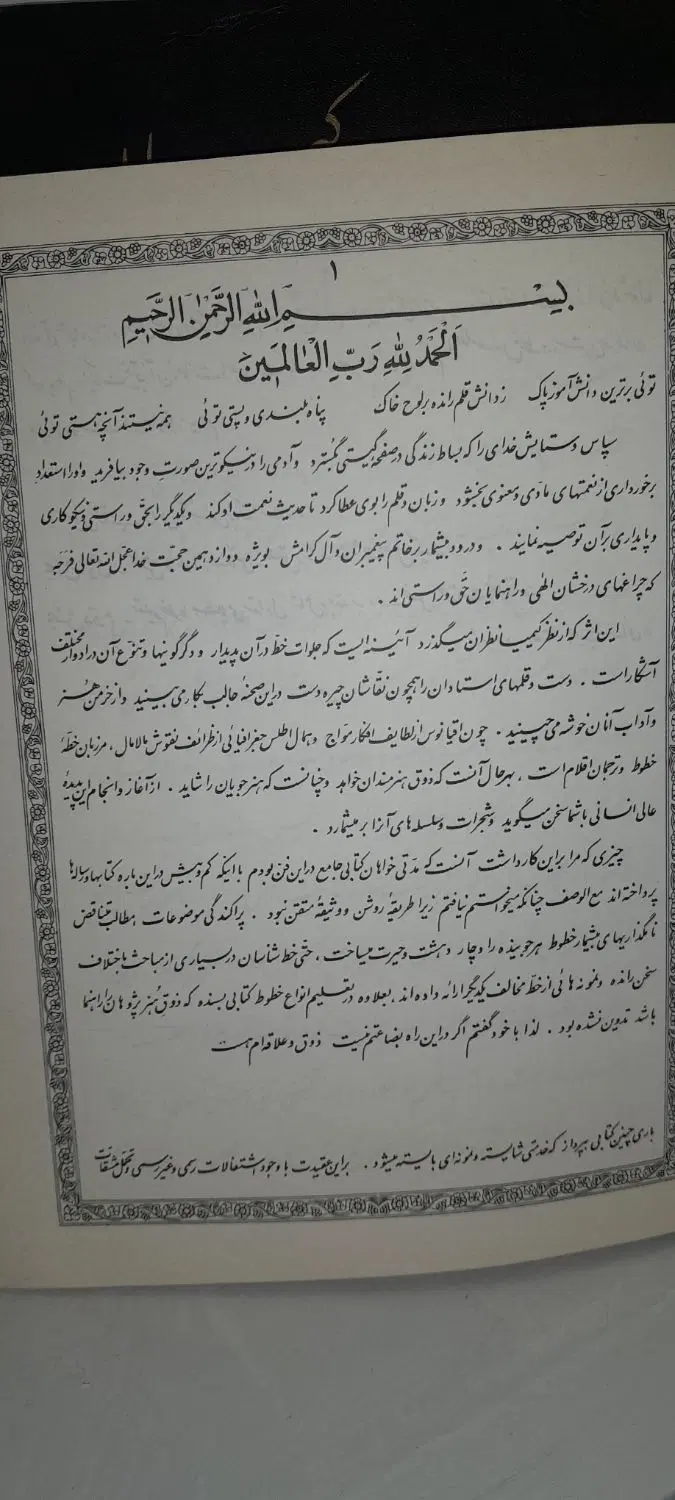 ۱
بِسْمِ اللهِ الرَّحْمٰنِ الرَّحِیمِ
اَلْحَمْدُ لِلّٰهِ رَبِّ الْعٰالَمینَ
توئی برترین دانش آموز پاک زدانش قلم رانده بر لوح خاک پناه بلندی و پستی توئی همه نیستند آنچه هستی توئی
سپاس و ستایش خدای را که بساط زندگی در صفحه گیتی گسترد و آدمی را در نیکوترین صورت وجود بیافرید و او را استعداد
برخورداری از نعمتهای مادّی و معنوی بخشود و زبان و قلم را بوی عطا کرد تا حدیث نعمت او کند و یکدیگر را بحقّ و راستی و نیکوکاری
و پایداری بر آن توصیه نمایند . و درود بیشمار بر خاتم پیغمبران و آل کرامش بویژه دوازدهمین حجّت خدا عجّل الله تعالی فرجه
که چراغهای درخشان الهی و راهنمایان حقّ و راستی اند .
این اثر که از نظر کیمیا نظران میگذرد آئینه ایست که جلوات خطّ در آن پدیدار و دگرگونیها و تنوّع آن در ادوار مختلف
آشکار است . دست و قلمهای استادان را همچون نقّاشان چیره دست در این صحنهٔ جالب بکار می بینید و از خرمن هنر
و آداب آنان خوشه می چینید . چون اقیانوس از لطایف افکار موّاج و همال اطلس جغرافیائی از ظرائف نقوش مالامال ، مرزبان خطّهٔ
خطوط و ترجمان اقلام است ، بهرحال آنست که ذوق هنرمندان خواهد و چنانست که هنرجویان را شاید . از آغاز و انجام این پدیدهٔ
عالی انسانی با شما سخن میگوید و شجرات و سلسله های آنرا بر میشمارد .
چیزی که مرا براین کار داشت آنست که مدّتی خواهان کتابی جامع در این فنّ بودم با اینکه کم و بیش در این باره کتابها و رساله ها
پرداخته اند مع الوصف چنانکه میخواستم نیافتم زیرا طریقهٔ روشن و وثیقهٔ متقن نبود . پراکندگی موضوعات مطالب متناقض
نامگذاریهای بیشمار خطوط هر جوینده را دچار دهشت و حیرت میساخت ، حتّی خطّ شناسان در بسیاری از مباحث باختلاف
سخن رانده و نمونه هائی از خطّ مخالف یکدیگر ارائه داده اند ، بعلاوه در تعلیم انواع خطوط کتابی بسنده که ذوق هنرپژوهان را راهنما
باشد تدوین نشده بود . لذا با خود گفتم اگر در این راه بضاعتم نیست ذوق و علاقه ام هست
باری چنین کتابی بپرداز که خدمتی شایسته و نمونه ای بایسته میشود . براین عقیدت با وجود اشتغالات رسمی و غیر رسمی و تحمّل مشقّات